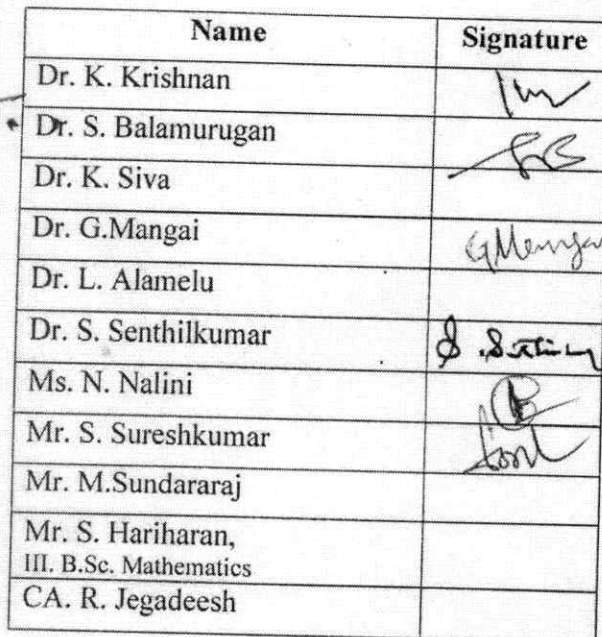 Name Signature
Dr. K. Krishnan
Dr. S. Balamurugan
Dr. K. Siva
Dr. G.Mangai GMangai
Dr. L. Alamelu
Dr. S. Senthilkumar
Ms. N. Nalini
Mr. S. Sureshkumar
Mr. M.Sundararaj
Mr. S. Hariharan,
III. B.Sc. Mathematics
CA. R. Jegadeesh